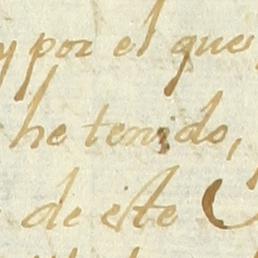 y por el que
he tenido,
de este